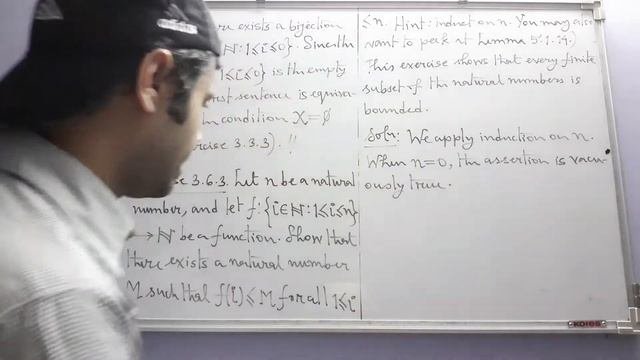 re exists a bijection
ℕ: 1≤i≤0}. Since the
1≤i≤0} is the empty
rst sentence is equiva-
condition X=∅
cise 3.3.3). !!
se 3.6.3. Let n be a natural
number, and let f: {i∈ℕ: 1≤i≤n}
→ℕ be a function. Show that
there exists a natural number
M such that f(i)≤M for all 1≤i
≤n. Hint: induct on n. You may also
want to peek at Lemma 5.1.14.)
This exercise shows that every finite
subset of the natural numbers is
bounded.
Soln: We apply induction on n.
When n=0, the assertion is vacu-
ously true.
KORES